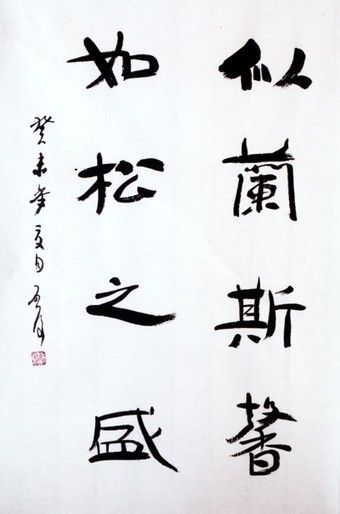 似蘭斯馨
如松之盛
癸未年夏日